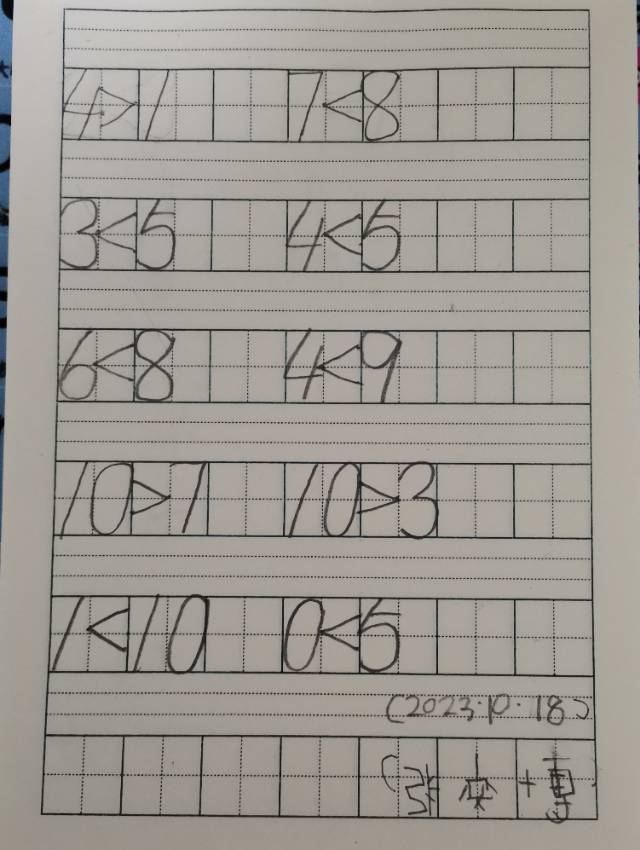 4>1 7<8
3<5 4<5
6<8 4<9
10>7 10>3
1<10 0<5
(2023.10.18)